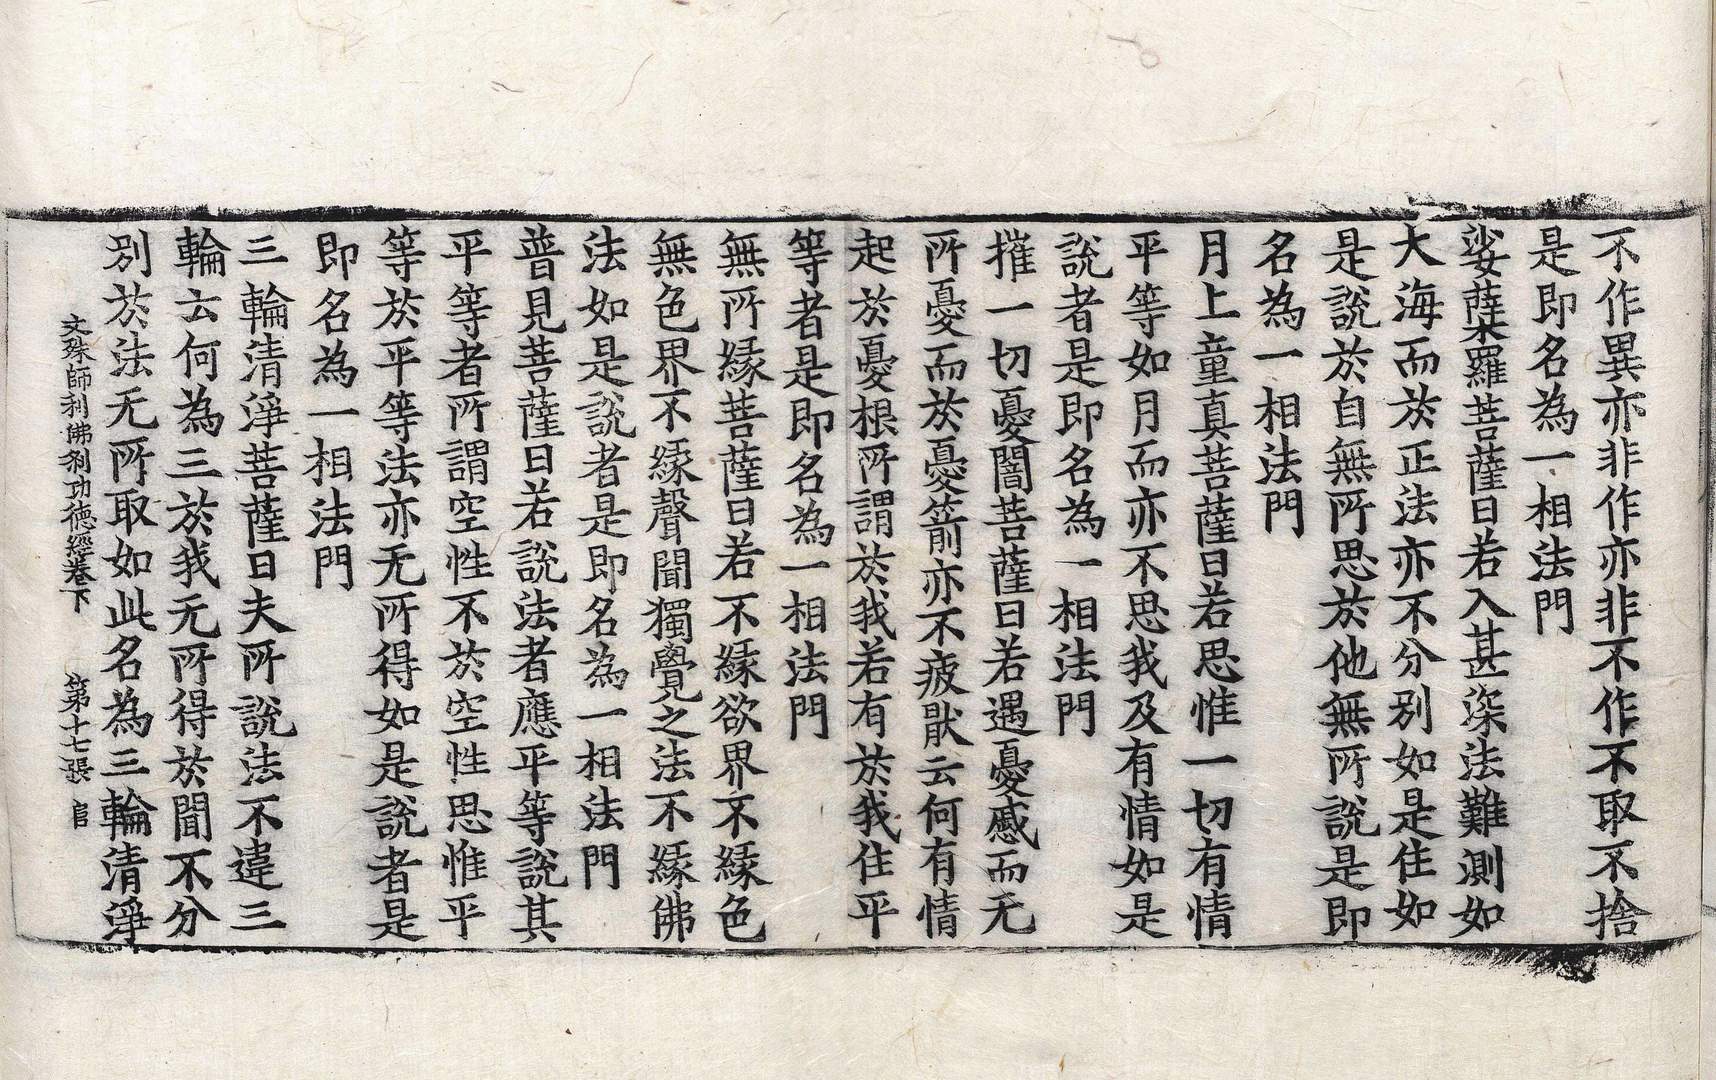 不作異亦非作亦非不作不取不捨
是即名為一相法門
娑蘖羅菩薩曰若入甚深法難測如
大海而於正法亦不分別如是住如
是說於自無所思於他無所說是即
名為一相法門
月上童真菩薩曰若思惟一切有情
平等如月而亦不思我及有情如是
說者是即名為一相法門
摧一切憂闇菩薩曰若遇憂慼而无
所憂而於憂箭亦不疲猒云何有情
起於憂根所謂於我若有於我住平
等者是即名為一相法門
無所緣菩薩曰若不緣欲界不緣色
無色界不緣聲聞獨覺之法不緣佛
法如是說者是即名為一相法門
普見菩薩曰若說法者應平等說其
平等者所謂空性不於空性思惟平
等於平等法亦无所得如是說者是
即名為一相法門
三輪清淨菩薩曰夫所說法不違三
輪云何為三於我无所得於聞不分
別於法无所取如此名為三輪清淨
文殊師利佛刹功德經卷下 第十七張 官